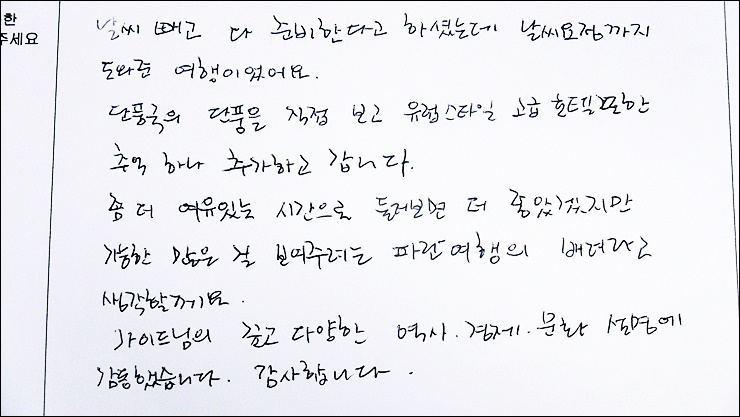 한
주세요
날씨 빼고 다 준비한다고 하셨는데 날씨요정까지
도와준 여행이었어요.
단풍국의 단풍을 직접 보고 유럽스타일 고급 호텔또한
추억 하나 추가하고 갑니다.
좀 더 여유있는 시간으로 둘러보면 더 좋았겠지만
가능한 많은 걸 보여주려는 파란여행의 배려라고
생각할께요.
가이드님의 깊고 다양한 역사. 경제. 문화 설명에
감동했습니다. 감사합니다.